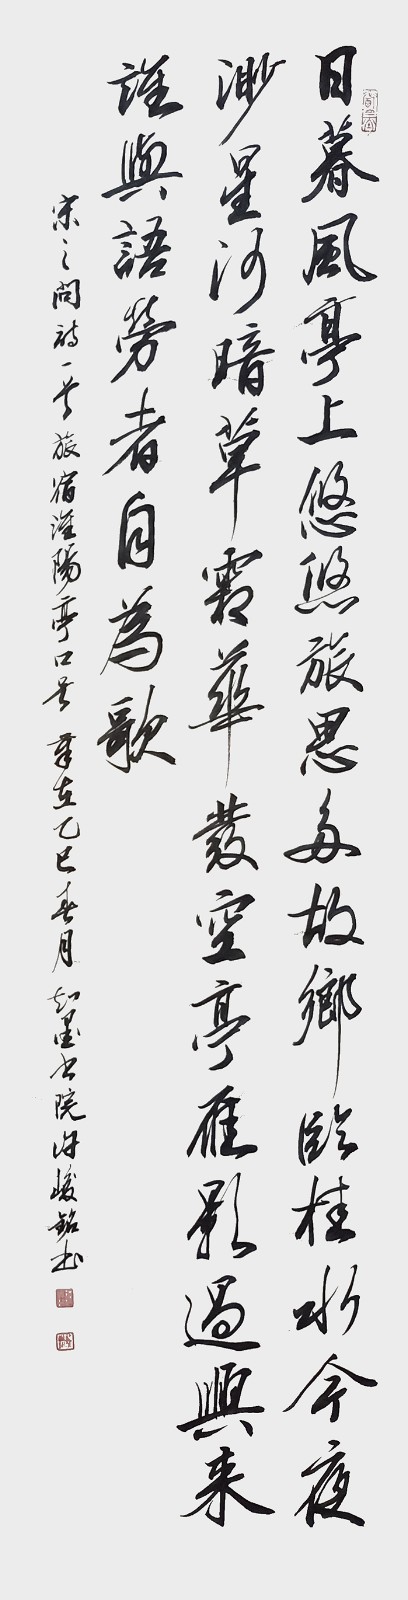 日暮風亭上悠悠旅思多故鄉臨桂水今夜
渺星河暗草霜華發空亭雁影過興来
誰與語勞者自為歌
宋之問詩一首旅宿淮陽亭口号 歲在乙巳春月 知墨书院许峻銘书